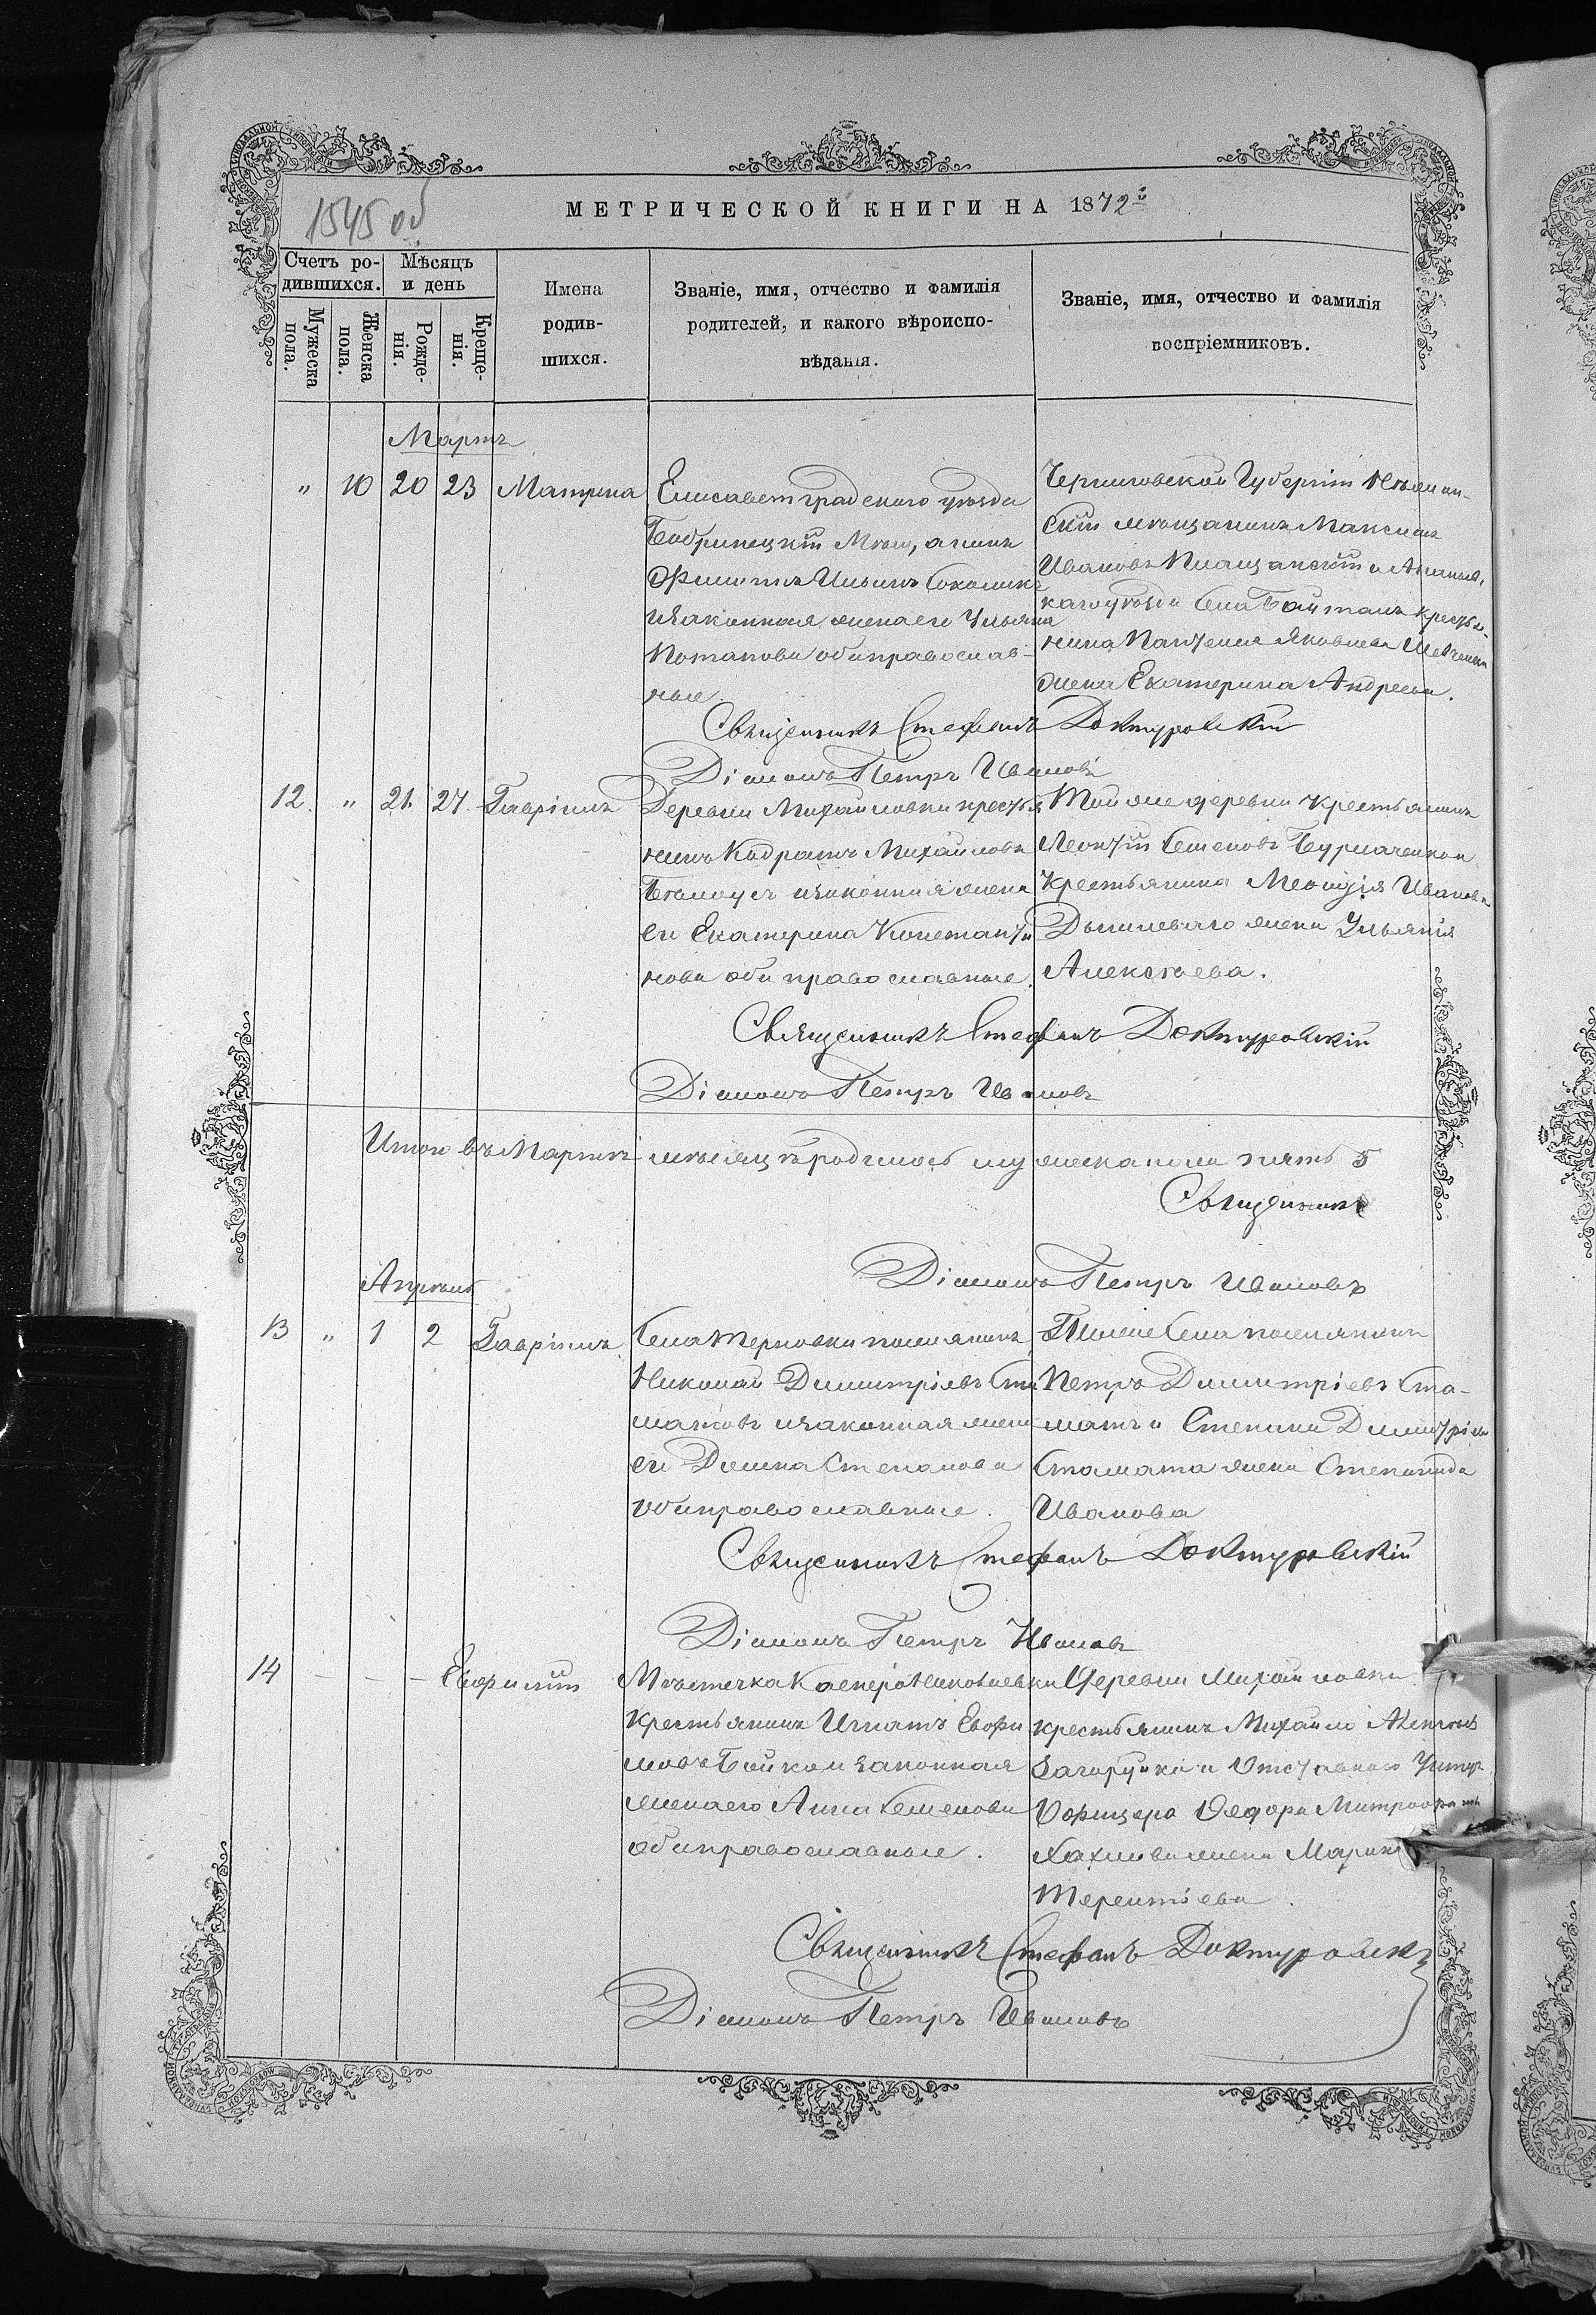 1545 об
МЕТРИЧЕСКОЙ КНИГИ НА 1872й
Счетъ ро-
дившихся.
Мѣсяцъ
и день
Мужеска
пола.
Женска
пола.
Рожде-
нія.
Креще-
нія.
Имена
родив-
шихся.
Званіе, имя, отчество и фамилія
родителей, и какого вѣроиспо-
вѣданія.
Званіе, имя, отчество и фамилія
воспріемниковъ.
Мартъ
" 10 20 23 Матрина
Елисаветградскаго уѣзда
Бобринецкій Мѣщанинъ
Филиппъ Ильинъ
и законная жена его Ульяна
Потапова оба православ-
ные
Черниговской Губерніи
скій мѣщанинъ Максимъ
Ивановъ и Ананьев-
каго уѣзда села крестья-
нина Яковлева
жена Екатерина Андреева.
Священникъ Стефанъ Доктуровскій
Діаконъ Петръ Ивановъ
12. " 21. 27 Гавріилъ
Деревни Михайловки крестья
нинъ Кодратъ Михайловъ
и законная жена
его Екатерина Константи
нова оба православные.
Той же деревни крестьянинъ
Леонтій Семеновъ и
Крестьянина Иванова
жена Ульянія
Алексѣева.
Священникъ Стефанъ Доктуровскій
Діаконъ Петръ Ивановъ
Итого въ Мартѣ мѣсяцѣ родилось мужеска пола пять 5
Священникъ
Діаконъ Петръ Ивановъ
Апрѣль
13 " 1 2 Гавріилъ
Села Терновки поселянинъ
Николай Димитріевъ Ста
матовъ и законная жена
его Домна Степанова
оба православные.
Того же Села поселянинъ
Петръ Димитріевъ Ста-
матъ и Степана Димитріева
Стамата жена Степанида
Иванова
Священникъ Стефанъ Доктуровскій
Діаконъ Петръ Ивановъ
14 – – – Евфимій
Мѣстечка Касперо Николаевки
крестьянинъ Игнатъ Евфи
мовъ Бойко и законная
жена его Анна Семенова
оба православные.
Деревни Михайловки
крестьянинъ Михайло
и Отставнаго Унтер
Офицера Федора Митрофан
жена
Терентіева.
Священникъ Стефанъ Доктуровскій
Діаконъ Петръ Ивановъ